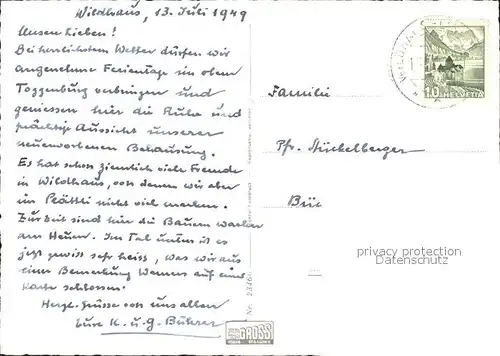 Wildhaus, 13. Juli 1949
Unsere Lieben!
Bei herrlichstem Wetter dürfen wir
angenehme Ferientage im oberen
Toggenburg verbringen und
geniessen hier die Ruhe und
prächtige Aussicht unserer
neuerworbenen Behausung.
Es hat schon ziemlich viele Fremde
in Wildhaus, von denen wir aber
im Plättli nicht viel merken.
Zur Zeit sind hier die Bauern wacker
am Heuen. Im Tal unten ist es
jetzt gewiss sehr heiss, was wir aus
einer Bemerkung Werners auf einer
Karte schlossen.
Herzl. Grüsse von uns allen
Eure K. u. G. Bührer
Familie
Pfr. Stückelberger
HELVETIA
10
WILDHAUS
privacy protection
DATENSCHUTZ
GROSS